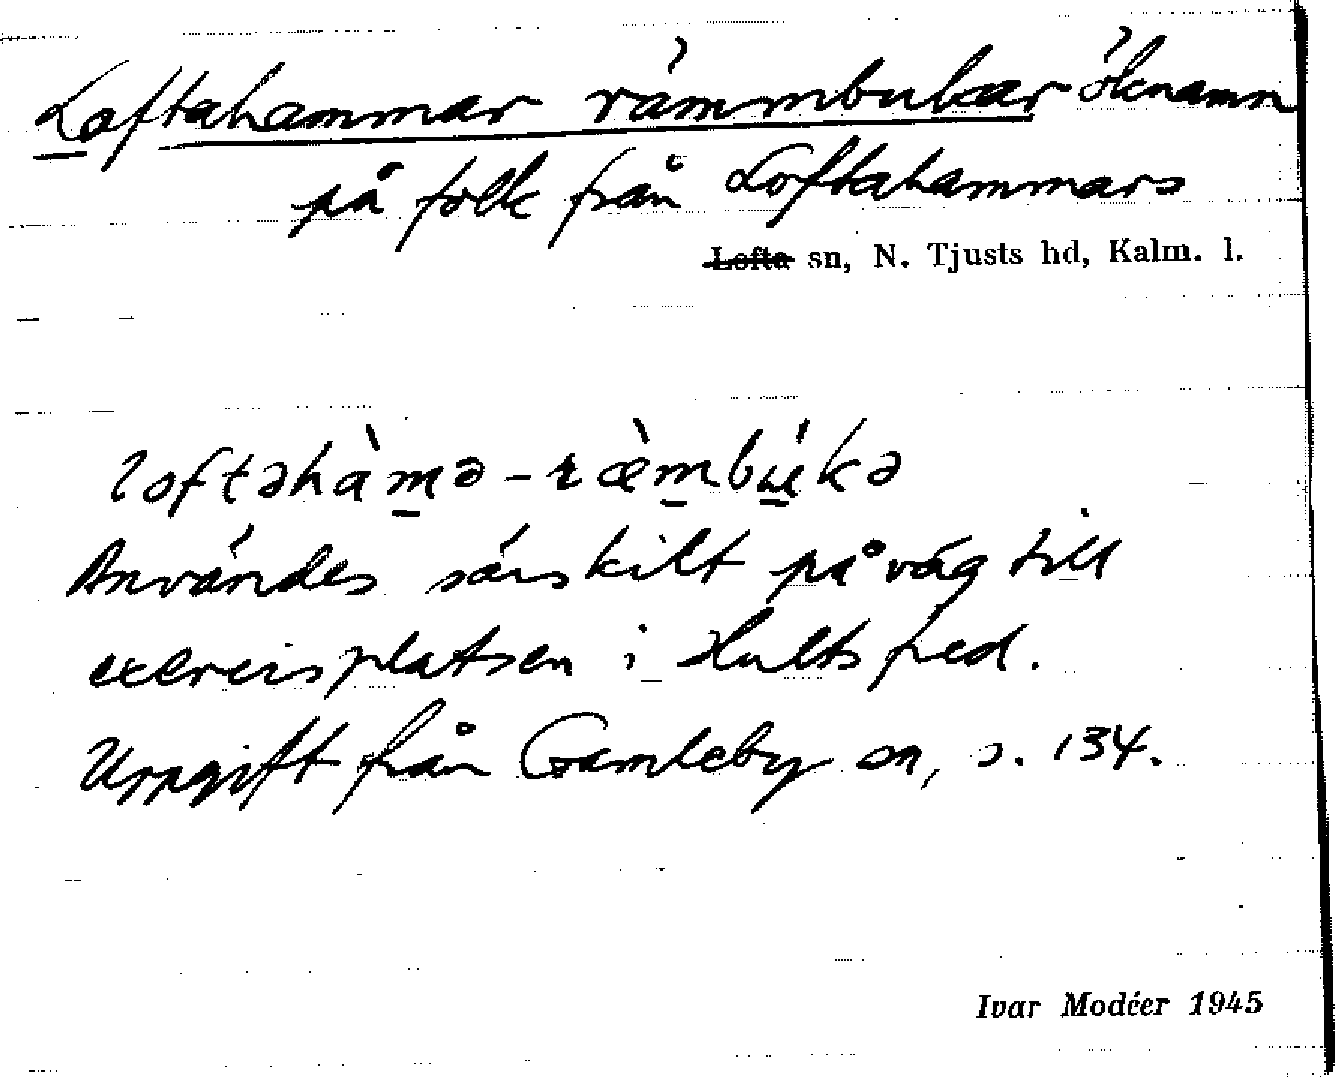 Loftahammar rämmbukar öknamn
på folk från Loftahammars
Lofta sn, N. Tjusts hd, Kalm. l.
loftəhàmə - ræ̀mbùkə
Användes särskilt på väg till
exercisplatsen i Hultsfred.
Uppgift från Gamleby sn, s. 134.
Ivar Modéer 1945